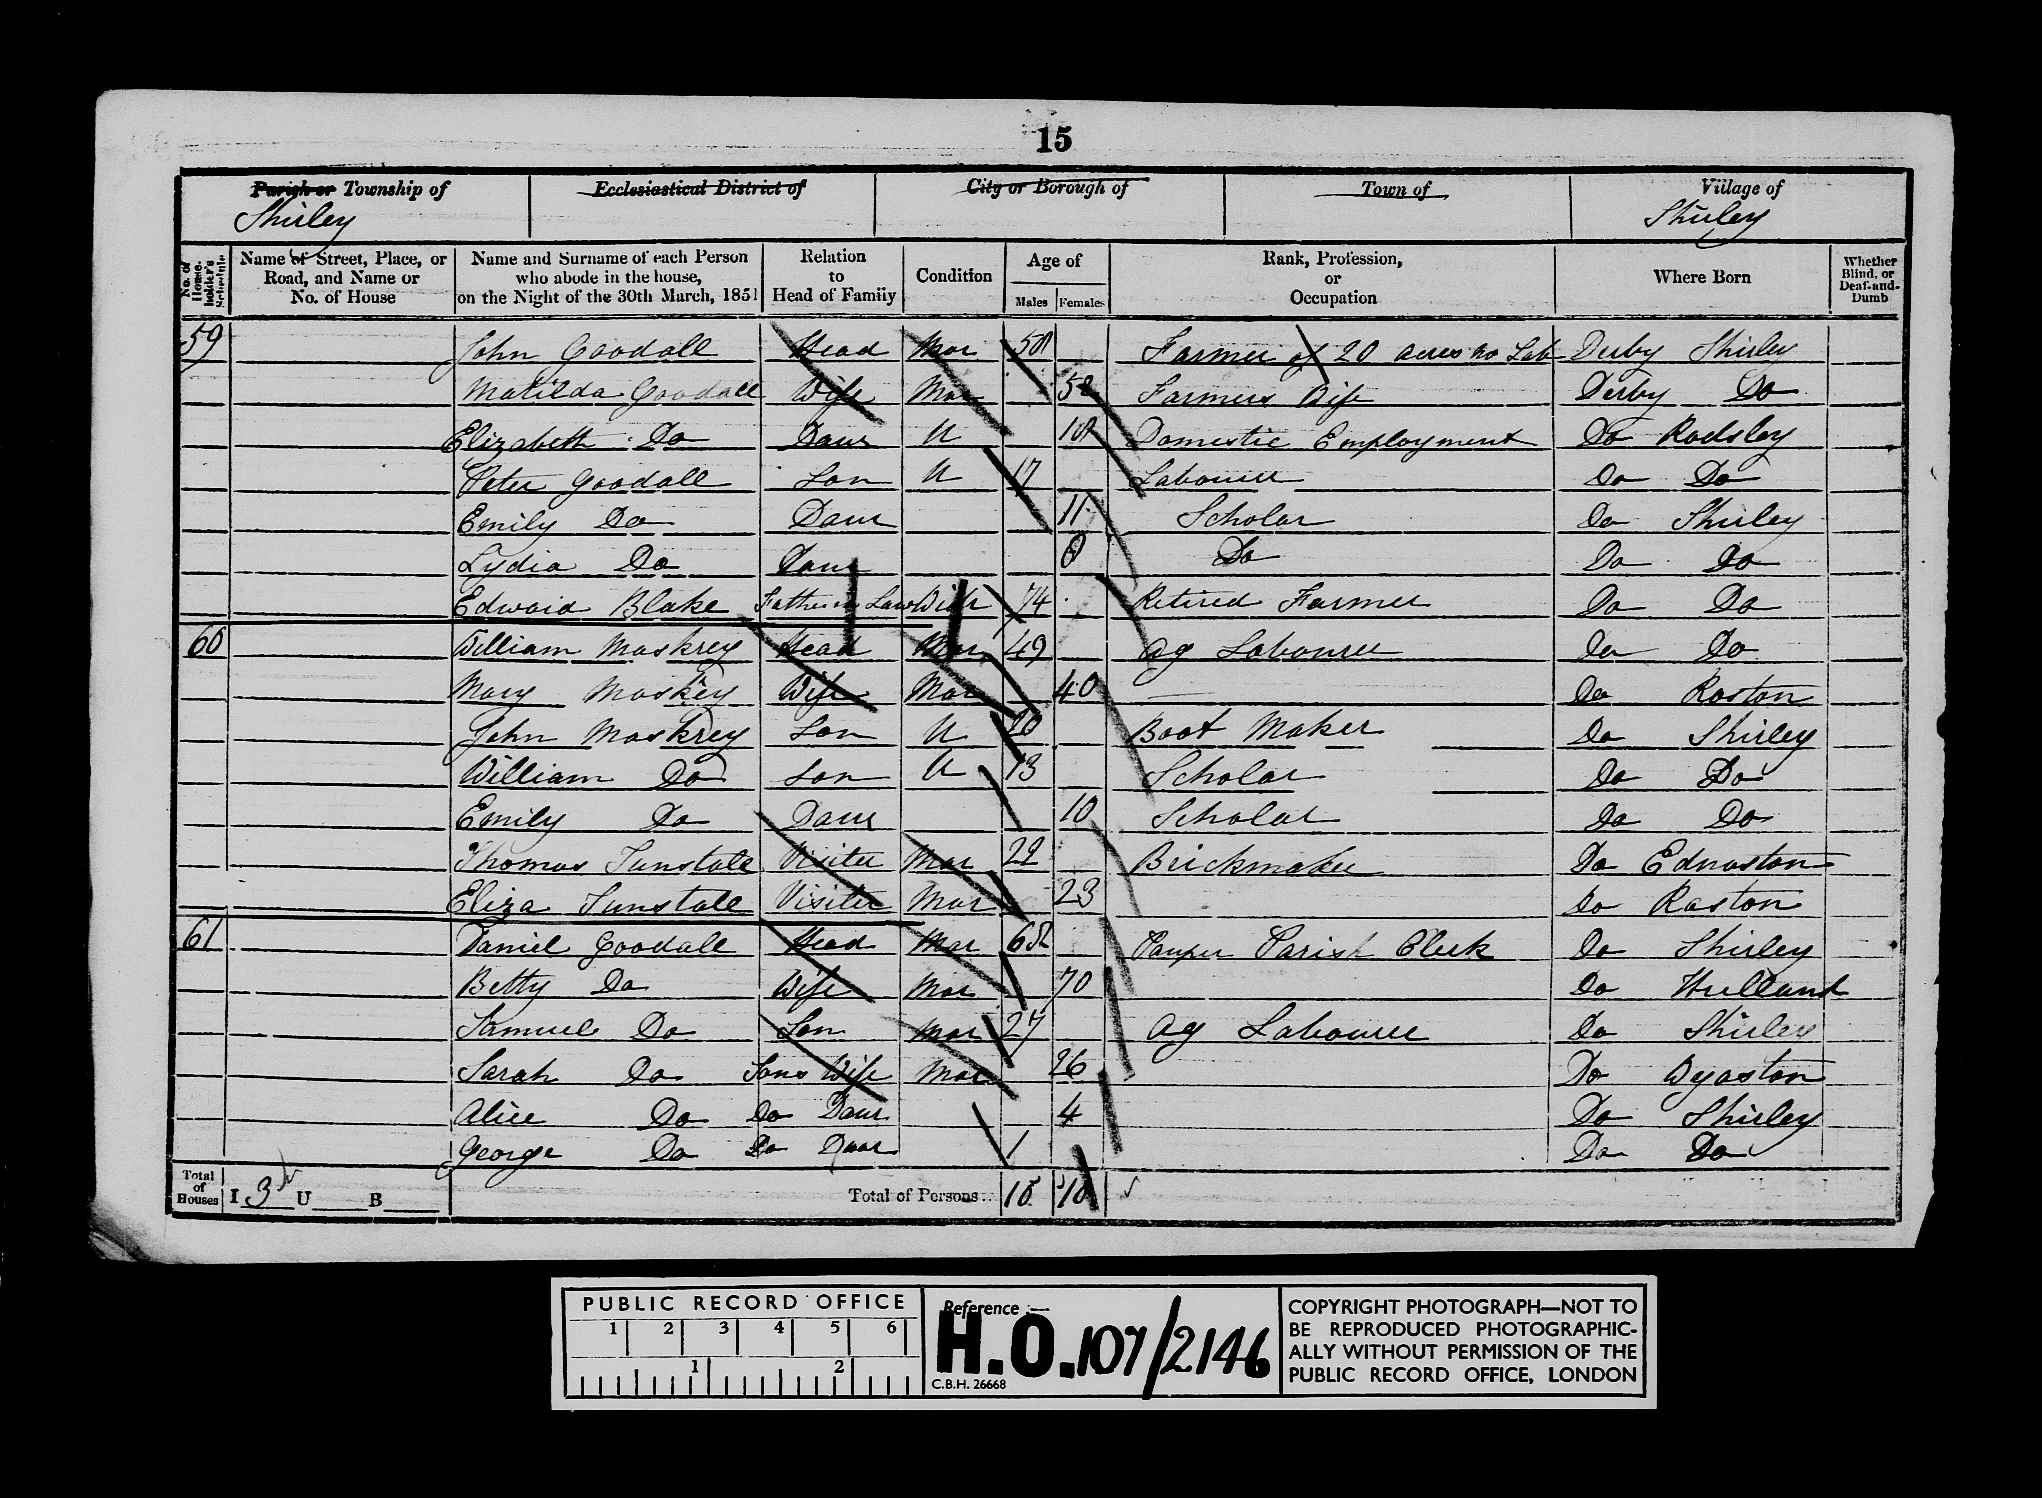 15
Parish or Township of Ecclesiastical District of City or Borough of Town of Village of
Shirley Shirley
No. of House-holder's Schedule Name of Street, Place, or Road, and Name or No. of House Name and Surname of each Person who abode in the house, on the Night of the 30th March, 1851 Relation to Head of Family Condition Age of Males Females Rank, Profession, or Occupation Where Born Whether Blind, or Deaf-and-Dumb
59 John Goodall Head Mar 58 Farmer of 20 acres no Lab Derby Shirley
Matilda Goodall Wife Mar 52 Farmers Wife Derby Do
Elizabeth Do Daur U 18 Domestic Employment Do Rodsley
Peter Goodall Son U 17 Labourer Do Do
Emily Do Daur 11 Scholar Do Shirley
Lydia Do Daur Do Do Do
Edward Blake Father in Law Widr 74 Retired Farmer Do Do
60 William Moskrey Head Mar 49 Ag Labourer Do Do
Mary Moskrey Wife Mar 40 Do Roston
John Moskrey Son U 20 Boot Maker Do Shirley
William Do Son U 13 Scholar Do Do
Emily Do Daur 10 Scholar Do Do
Thomas Tunstall Visiter Mar 22 Brickmaker Do Ednaston
Eliza Tunstall Visiter Mar 23 Do Roston
61 Daniel Goodall Head Mar 68 Pauper Parish Clerk Do Shirley
Betty Do Wife Mar 70 Do Hulland
Samuel Do Son Mar 27 Ag Labourer Do Shirley
Sarah Do Sons Wife Mar 26 Do Wyaston
Alice Do Do Daur 4 Do Shirley
George Do Do Daur 1 Do Do
Total of Houses I 3 U B Total of Persons... 10 10
PUBLIC RECORD OFFICE
1 2 3 4 5 6
1 2
Reference :—
H.O.107/2146
C.B.H. 26668
COPYRIGHT PHOTOGRAPH—NOT TO
BE REPRODUCED PHOTOGRAPHIC-
ALLY WITHOUT PERMISSION OF THE
PUBLIC RECORD OFFICE, LONDON